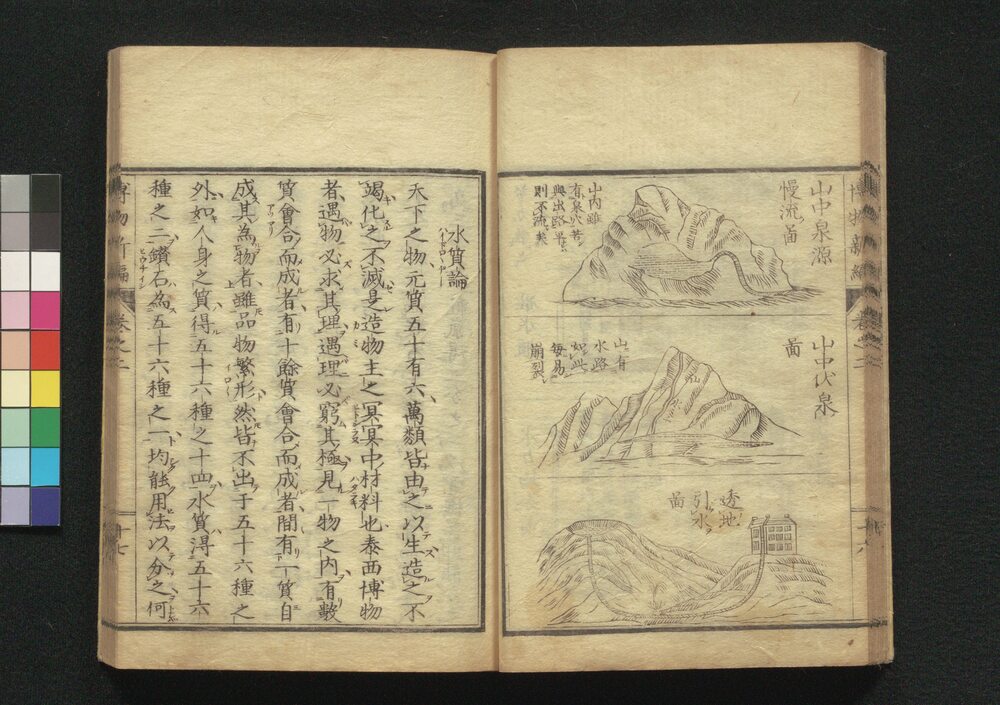 博物新編
卷之二
十六
山中泉源
慢流啚
山内雖
有泉穴若
與出路平
則不流矣
山中伏泉
啚
山有
水路
如此
每易
崩裂
透地
引水
啚
水質論
天下之物元質五十有六萬類皆由之以生造之不
竭化之不滅是造物主之冥冥中材料也泰西博物
者遇物必求其理遇理必窮其極見一物之内有數
質會合而成者有十餘質會合而成者間有一質自
成其為物者雖品物繁形然皆不出于五十六種之
外如人身之質得五十六種之十四水質得五十六
種之二鑽石為五十六種之一均能用法以分之何
博物新編
卷之二
十七